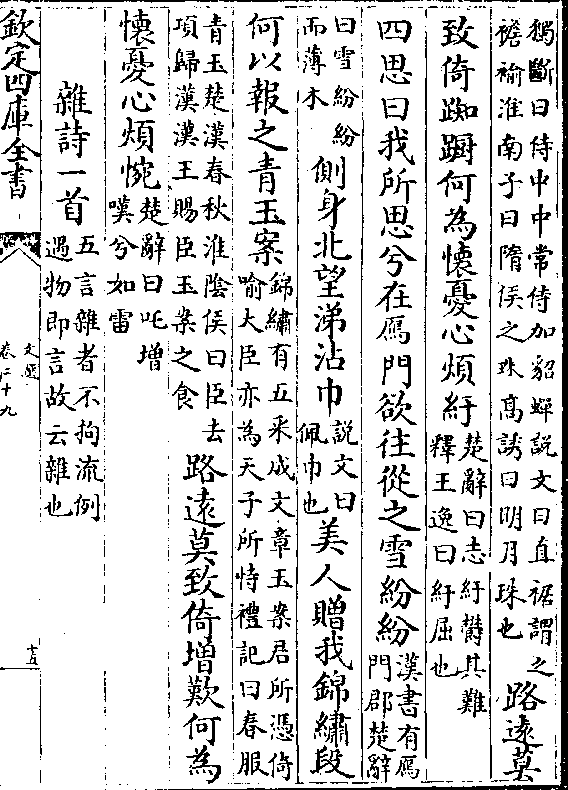 獨斷曰侍中中常侍加貂蟬說文曰直裾謂之
襜褕淮南子曰隋侯之珠高誘曰明月珠也
路遠莫
致倚踟蹰何為懷憂心煩紆
楚辭曰志紆鬱其難
釋王逸曰紆屈也
四思曰我所思兮在鴈門欲往從之雪紛紛
漢書有鴈
門郡楚辭
曰雪紛紛
而薄木
側身北望涕沾巾
說文曰
佩巾也
美人贈我錦繡段
何以報之青玉案
錦繡有五采成文章玉案君所憑倚
喻大臣亦為天子所恃禮記曰春服
青玉楚漢春秋淮陰侯曰臣去
項歸漢漢王賜臣玉案之食
路遠莫致倚增歎何為
懷憂心煩惋
楚辭曰吒增
嘆兮如雷
雜詩一首
五言雜者不拘流例
遇物即言故云雜也
欽定四庫全書
文選
卷二十九
十五